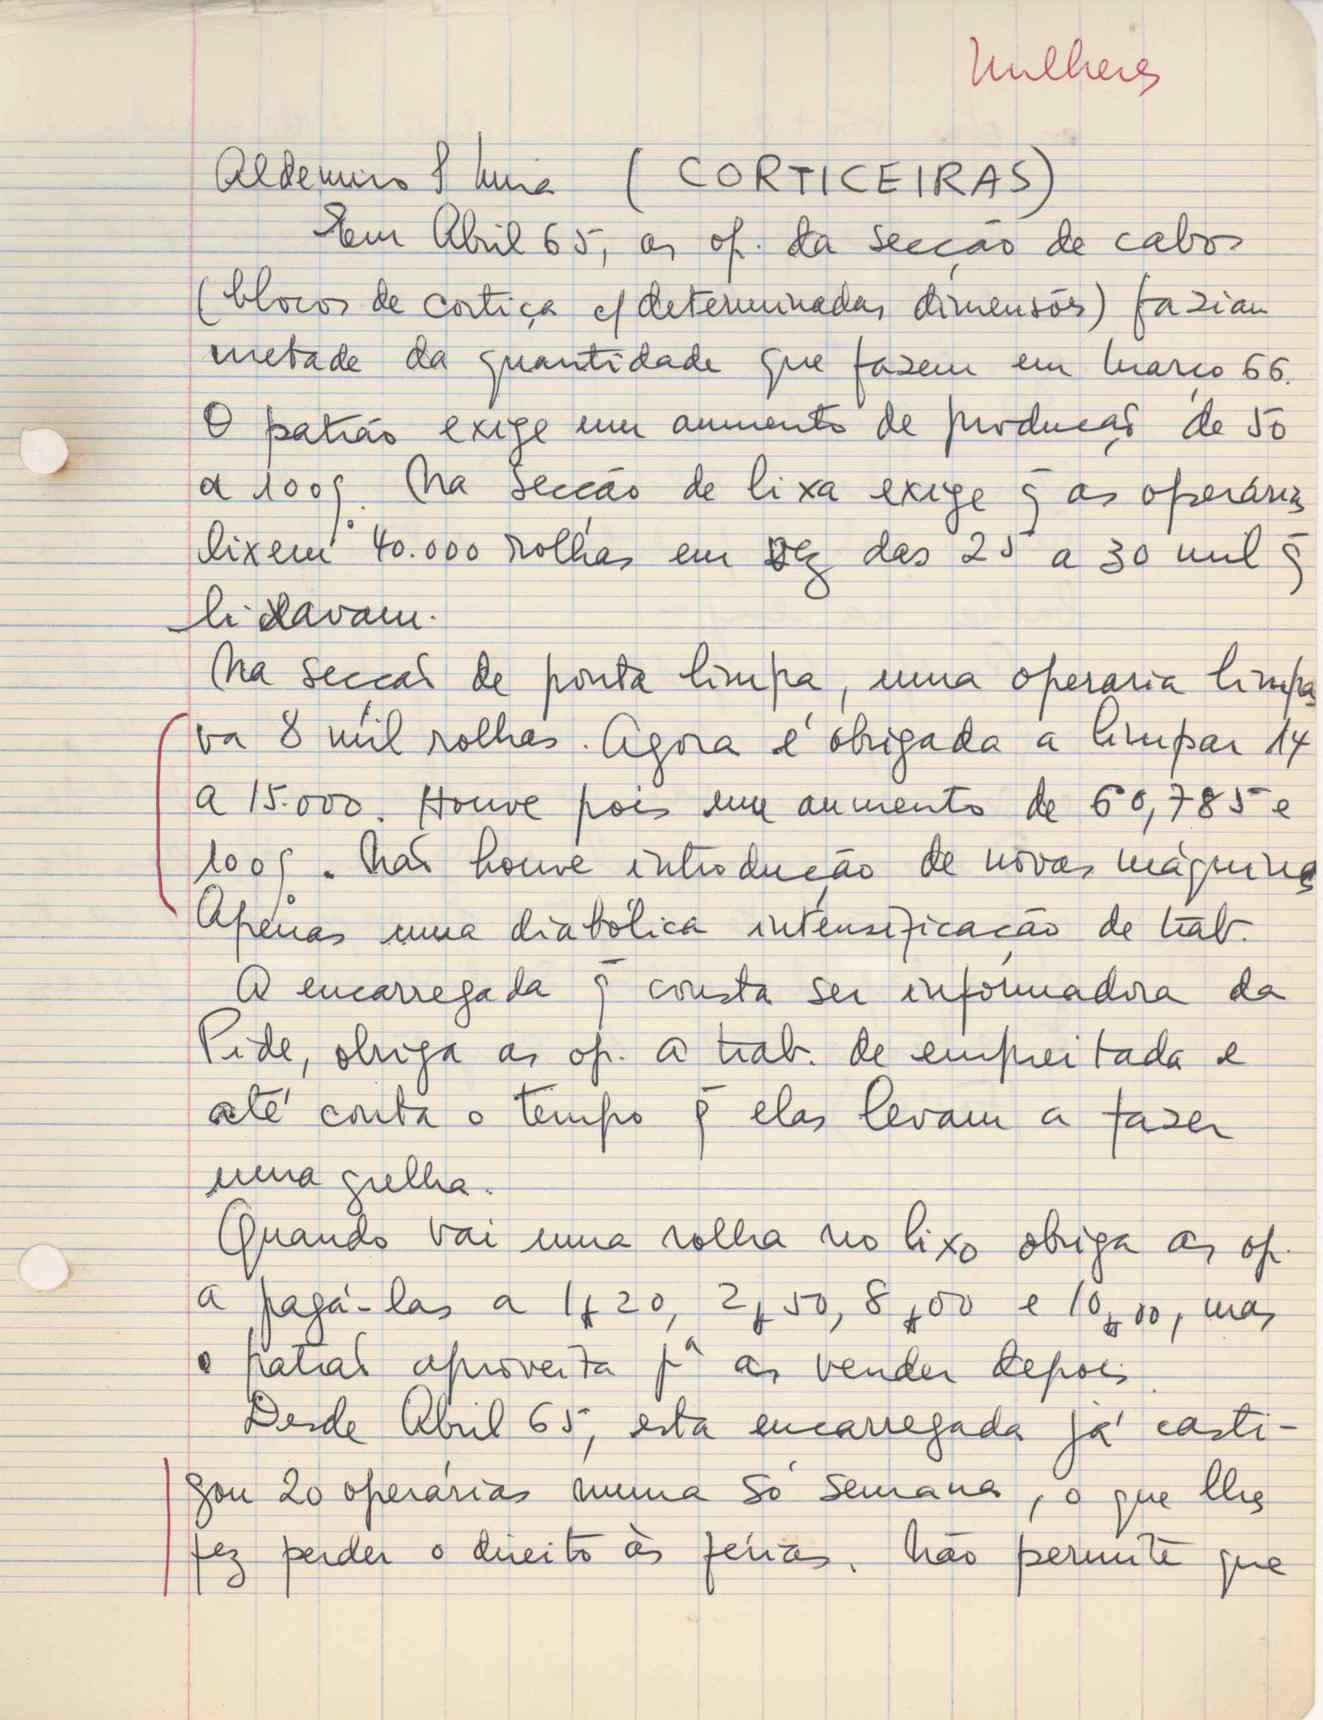 Mulheres
Aldemiro S Mira (CORTICEIRAS)
Em Abril 65, as op. da secção de cabos
(blocos de cortiça c/ determinadas dimensões) faziam
metade da quantidade que fazem em Março 66.
O patrão exige um aumento de produção de 50
a 100%. Na secção de lixa exige q̄ as operárias
lixem 40.000 rolhas em vez das 25 a 30 mil q̄
lixavam.
Na secção de ponta limpa, uma operaria limpa
va 8 mil rolhas. Agora é obrigada a limpar 14
a 15.000. Houve pois um aumento de 60, 785 e
100%. Não houve introdução de novas máquinas
Apenas uma diabólica intensificação de trab.
A encarregada q̄ consta ser informadora da
Pide, obriga as op. a trab. de empreitada e
até conta o tempo q̄ elas levam a fazer
uma grelha.
Quando vai uma rolha no lixo obriga as op.
a pagá-las a 1$20, 2$50, 8$00 e 10$00, mas
o patrão aproveita pª as vender depois.
Desde Abril 65, esta encarregada já casti-
gou 20 operárias numa só semana, o que lhes
fez perder o direito às férias. Não permite que